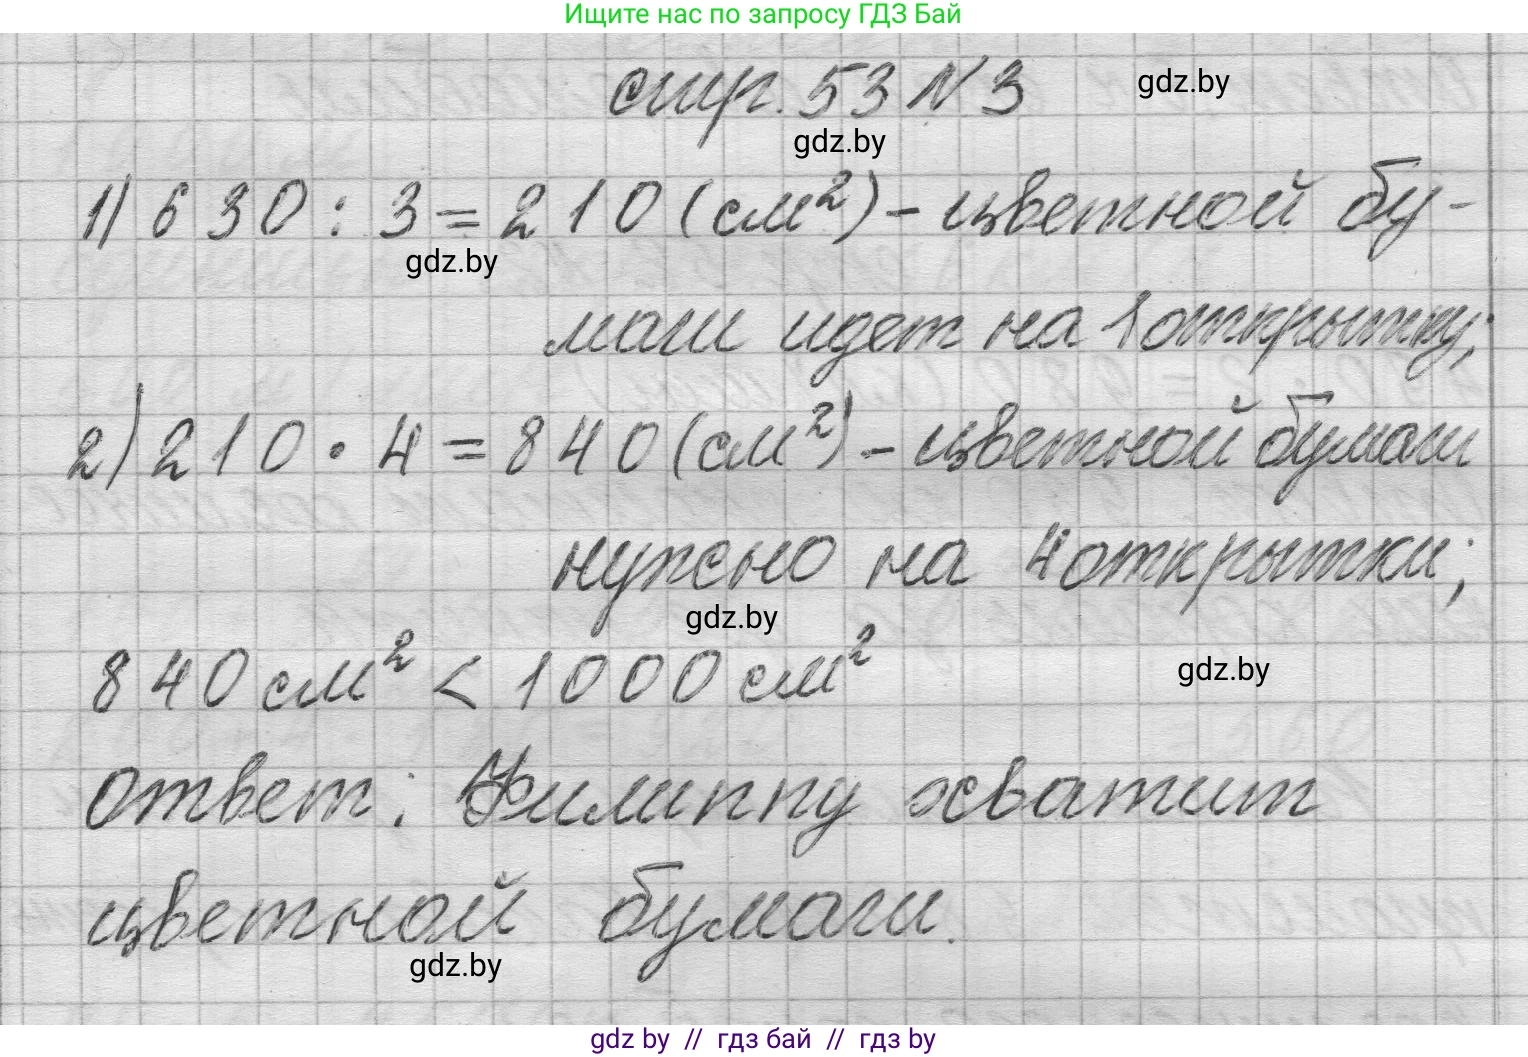 Ищите нас по запросу ГДЗ Бай
стр. 53 N 3
gdz.by
gdz.by
1) 630 : 3 = 210 (см²) - цветной бу-
gdz.by
маги идет на 1 открытку;
2) 210 · 4 = 840 (см²) - цветной бумаги
нужно на 4 открытки;
gdz.by
840 см² < 1000 см²
gdz.by
ответ: Филиппу хватит
цветной бумаги.
gdz.by
gdz by // гдз бай // гдз by